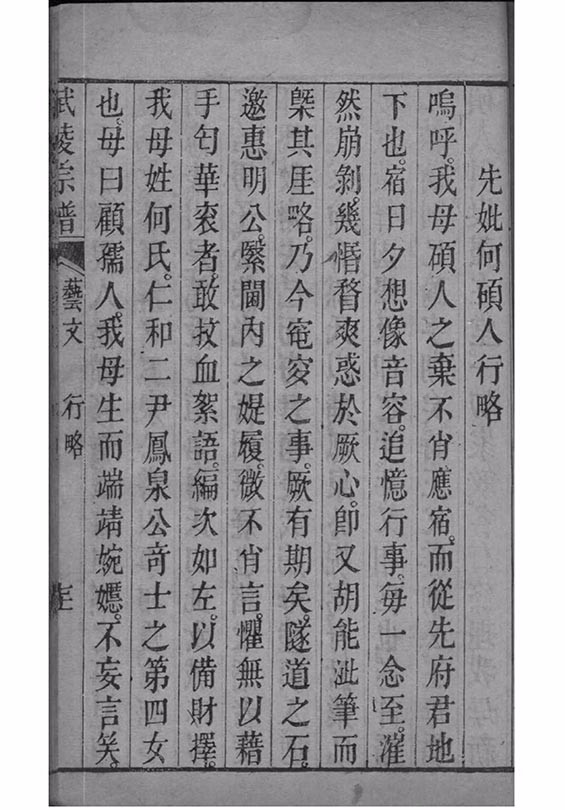 先妣何碩人行略
嗚呼。我母碩人之棄不肖應宿。而從先府君地
下也。宿日夕想像音容。追憶行事。每一念至。漼
然崩剝。幾惛瞀爽惑於厥心。卽又胡能泚筆而
槩其厓略。乃今窀穸之事。厥有期矣。隧道之石。
邀惠明公。緊閫內之媞履。微不肖言。懼無以藉
手匄華衮者。敢抆血絮語。編次如左。以備財擇。
我母姓何氏。仁和二尹鳳泉公奇士之第四女
也。母曰顧孺人。我母生而端靖婉嫕。不妄言笑。
武陵宗譜 藝文 行略